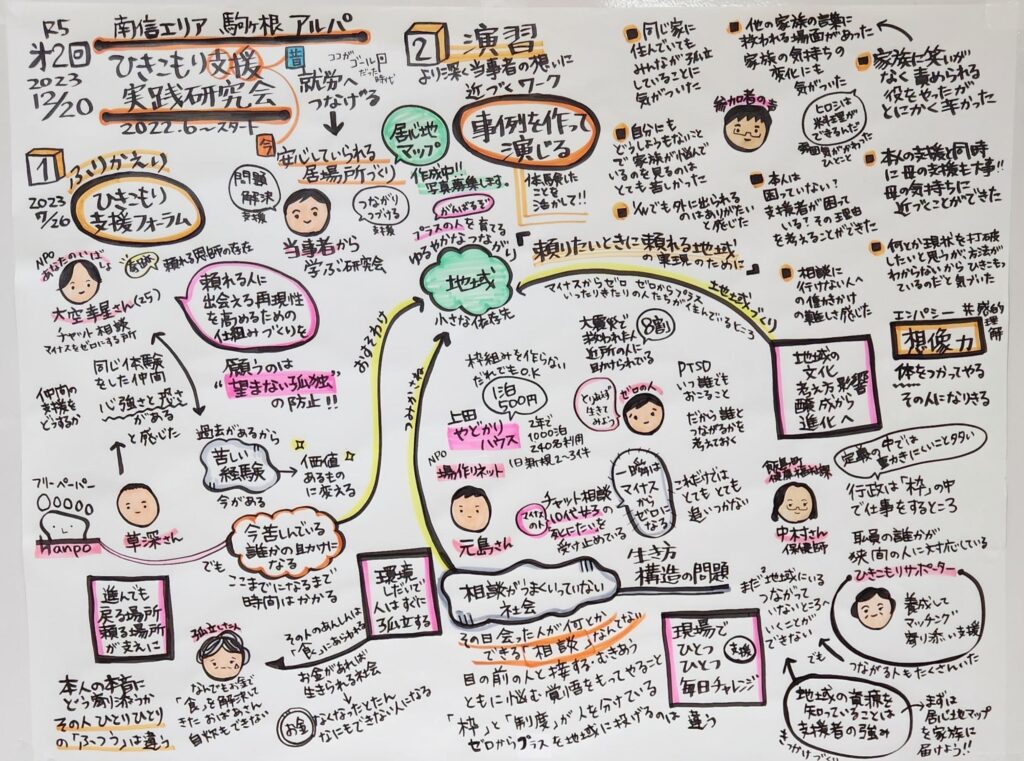 R5
南信エリア 駒ヶ根 アルパ
第2回
ひきこもり支援
実践研究会
2023
12/20
2022.6〜スタート
昔
ココが
ゴール
だった
時代
就労へ
つなげる
今
安心していられる
居場所づくり
問題
解決
支援
つながり
つづける
支援
当事者から
学ぶ研究会
居心地
マップ
作成中!!
写真募集します。
1
ふりかえり
2023
7/26
ひきこもり
支援フォーラム
NPO
あなたのいばしょ
大空幸星さん(25)
チャット相談
マイナスをゼロにする所
頼れる恩師の存在
頼れる人に
出会える再現性
を高めるための
仕組みづくりを
願うのは
"望まない孤独"
の防止!!
同じ体験
をした仲間
心強さと
がある
と感じた
仲間の
支援を
どうするか
フリーペーパー
Hanpo
草深さん
過去があるから
苦しい
経験
今がある
価値
あるもの
に変える
今苦しんでいる
誰かの助けに
なる
でも
ここまでになるまで
時間はかかる
進んでも
戻る場所
頼る場所
が支えに
本人の本音に
どう寄り添うか
その人ひとりひとり
の「ふつう」は違う
孤立した人
なんでもお金で
「食」を解決して
きたおばあさん
自炊もできない
その人のあんしんは
「食」にあらわれる
お金があれば
生きられる社会
お金
なくなったとたん
なにもできない人になる
環境
しだいで
人はすぐに
孤立する
がんばるぞ
プラスの人を育てる
ゆるやかなつながり
地域
小さな依存先
おすそわけ
つみかさね
2
演習
より深く当事者の想いに
近づくワーク
事例を作って
演じる
体験した
ことを
活かして!!
同じ家に
住んでいても
みんなが孤立
していることに
気がついた
自分にも
どうしようもないこと
で家族が悩んで
いるのを見るのは
とても苦しかった
1/wでも外に出られる
のはありがたい
と感じた
他の家族の言葉に
救われる場面があった
家族の気持ちの
変化にも
気がついた
参加者の声
ヒロシは
料理が
できるんだ
雰囲気がかわった
ひとこと
本人は
困っていない?
支援者が困って
いる?その理由
を考えることができた
相談に
行けない人へ
の働きかけ
の難しさ感じた
家族に笑いが
なく責められる
役をやったが
とにかく辛かった
本人の支援と同時
に母の支援も大事!!
母の気持ちに
近づくことができた
何とか現状を打破
したいと思うが、方法が
わからないからひきこもっ
ているのだと気づいた
エンパシー
共感的
理解
想像力
体をつかってやる
その人になりきる
頼りたいときに頼れる地域
の実現のために
マイナスからゼロ ゼロからプラス
いったりきたりの人たちが住んでいるところ
地域づくり
地域の
文化
考え方影響
醸成から
進化へ
枠組みを作らない
だれでもO.K
1泊
500円
上田
やどかり
ハウス
2年で
1000泊
240名利用
1日新規2〜3件
NPO
場作りネット
元島さん
マイナスの人
チャット相談
10代女子の
死にたいを
受け止めている
大震災で
救われた人
近所の人に
助けられている
8割
とりあえず
生きて
みよう
ゼロの人
PTSD
いつ誰でも
おこること
だから誰と
つながるかを
考えておく
一瞬は
マイナス
から
ゼロになる
これだけでは
とてもとても
追いつかない
生き方
構造の問題
相談がうまくいっていない
社会
その日会った人が何とか
できる「相談」なんてない
目の前の人と接する・むきあう
ともに悩む覚悟をもってやること
「枠」と「制度」が人を分けている
ゼロからプラスを地域に投げるのは違う
現場で
ひとつ
ひとつ
支援
毎日チャレンジ
飯島町
健康福祉課
中村さん
保健師
定義の中では
動きにくいこと多い
行政は「枠」の中
で仕事をするところ
職員の誰かが
狭間の人に対応している
ひきこもりサポーター
養成して
マッチング
寄り添い支援
まだ地域にいる
つながって
いないところへ
いくことが
できない
でも
つながる人もたくさんいた
地域の資源を
知っていることは
支援者の強み
きっかけづくり
まずは
居心地マップ
を家族に
届けよう!!